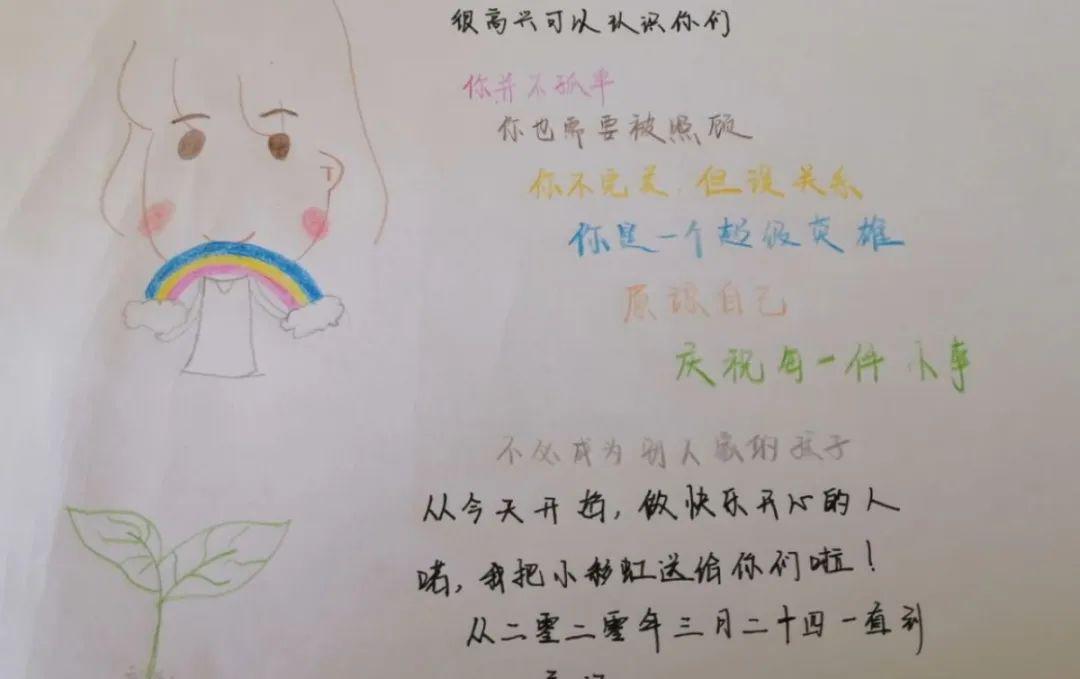 很高兴可以认识你们
你并不孤单
你也需要被照顾
你不完美,但没关系
你是一个超级英雄
原谅自己
庆祝每一件小事
不必成为别人家的孩子
从今天开始,做快乐开心的人
喏,我把小彩虹送给你们啦!
从二零二零年三月二十四一直到